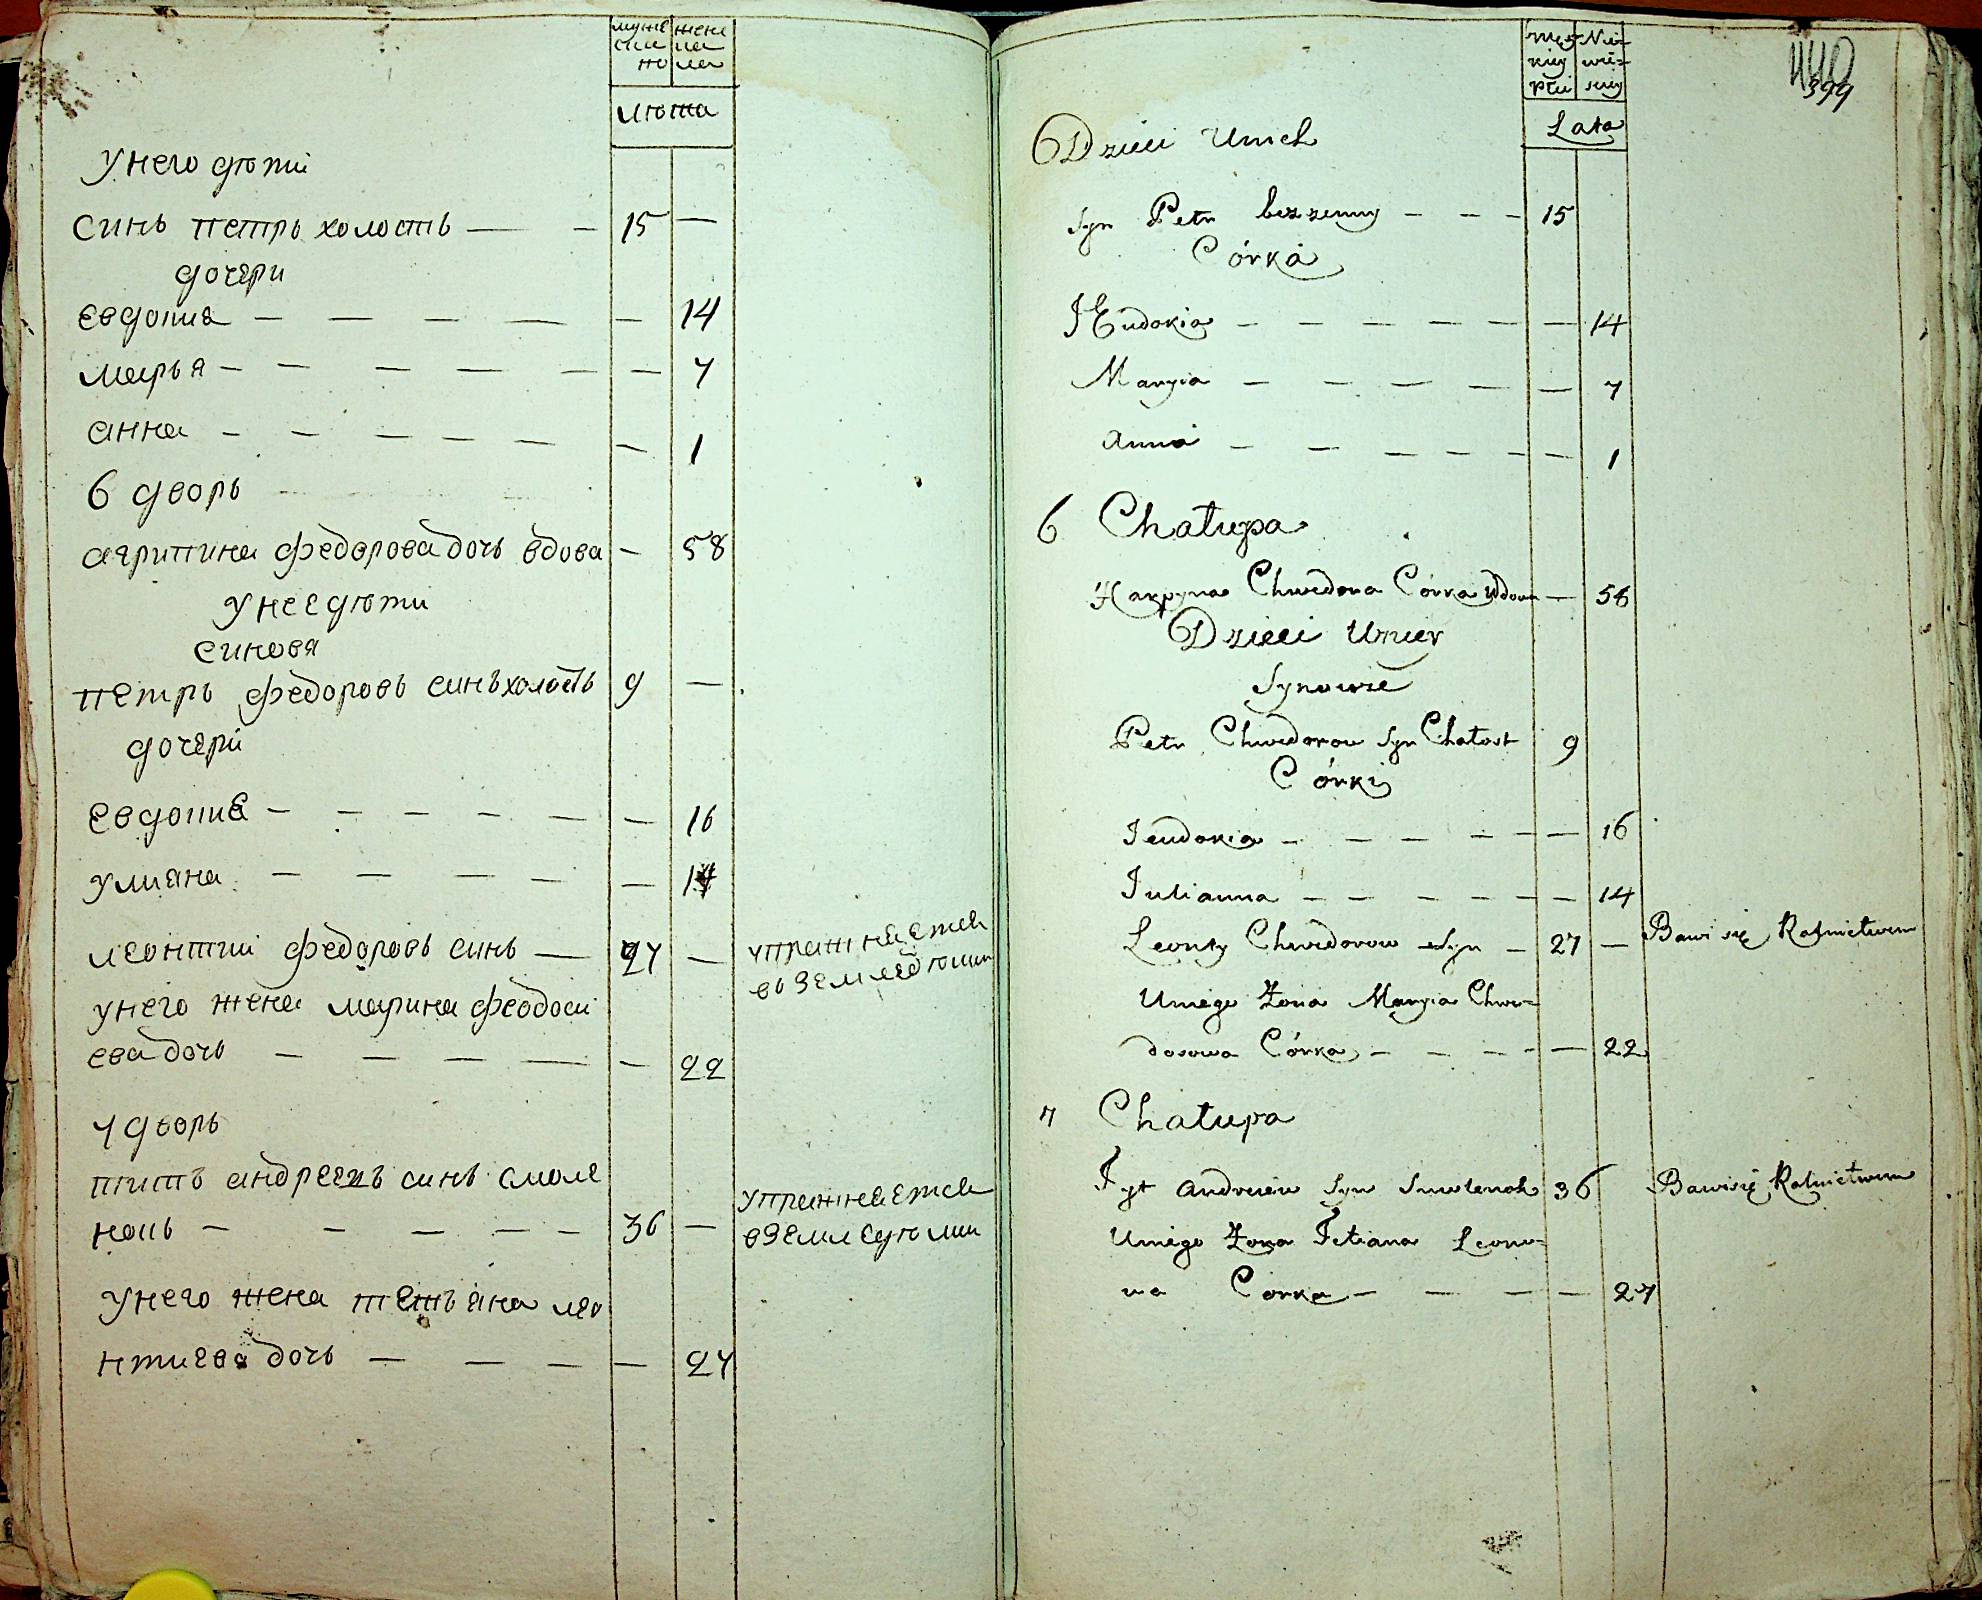 муже жене
ска ка
но ла
лѣта
У него дѣти
синъ петръ холостъ — — 15 —
дочери
евдокия — — — — — 14
марья — — — — — — 7
анна — — — — — — — 1
6 дворъ
агрипина федорова дочь вдова — 58
У нее дѣти
синовя
петръ федоровъ синъ холостъ 9 —
дочери
евдокиѣ — — — — — — — 16
улияна — — — — — 14
леонтии федоровъ синъ — 27 — упражнеетсе
въ земледѣлии
у него жена марина феодоси
ева дочь — — — — — 22
7 дворъ
титъ андреевъ синъ смоле
нокъ — — — — — 36 — упражнеетсе
в земледѣлии
У него жена тетьяна лео
нтиева дочь — — — — — 27
męz Nie
kiey wie=
płci skiey
Lata
399
Dzieci Umeh
Syn Petr bezzenny — — — 15
Córka
JEudokia — — — — — — — 14
Maryia — — — — — — 7
Anna — — — — — — — 1
6 Chatupa
Hakpyna Chwedora Córka Wdowa — 58
Dzieci Uniey
Synowie
Petr Chwedorow Syn Chałost 9
Córki
Jeudokia — — — — — — 16
Julianna — — — — — — — 14
Leonty Chwedorow Syn — 27 — Bawi się Rolnictwem
Uniego Żona Maryia Chwe=
dosowa Córka — — — — — 22
7 Chatupa
Tyt Andreiew Syn Smolenok 36 Bawi się Rolnictwem
Uniego Żona Tetiana Leono=
wa Corka — — — — 27